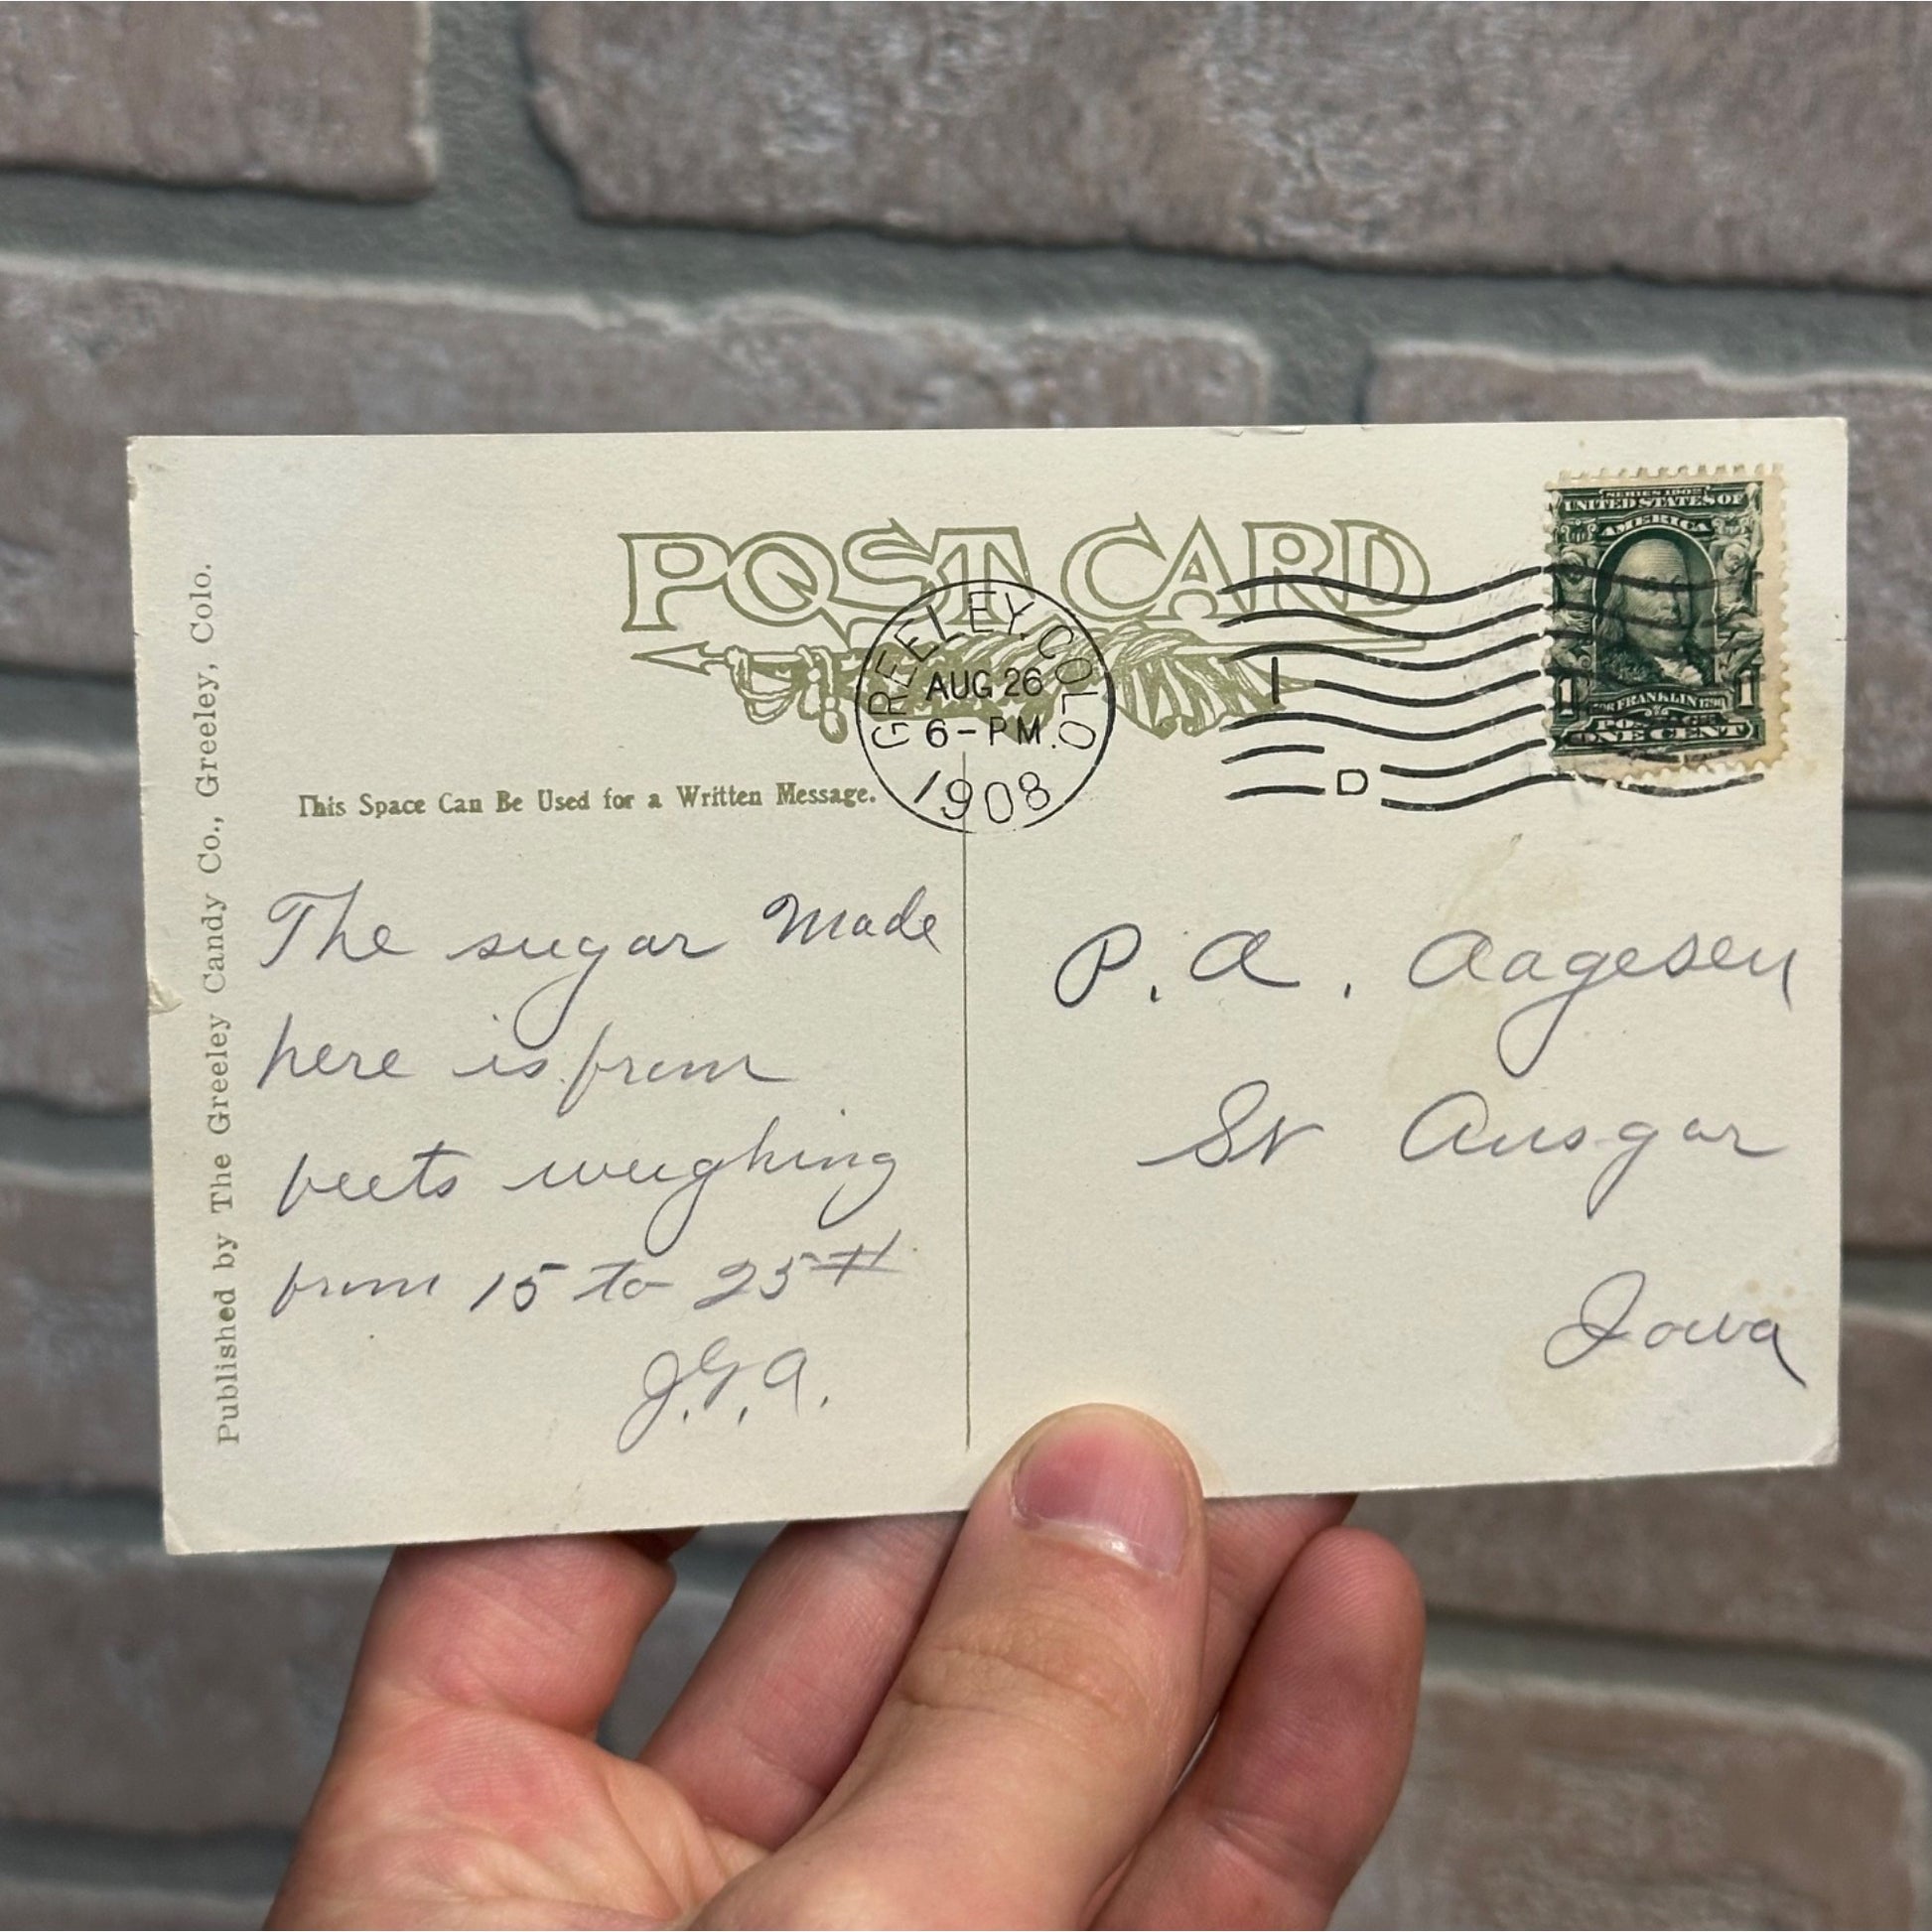 POST CARD
GREELEY, COLO.
AUG 26
6-PM.
1908
1
D
SERIES 1902
UNITED STATES OF
AMERICA
FRANKLIN
1 1
POSTAGE
ONE CENT
This Space Can Be Used for a Written Message.
Published by The Greeley Candy Co., Greeley, Colo.
The sugar Made
here is from
beets weighing
from 15 to 25 #
J.G.A.
P. A. Aagesen
St Ansgar
Iowa